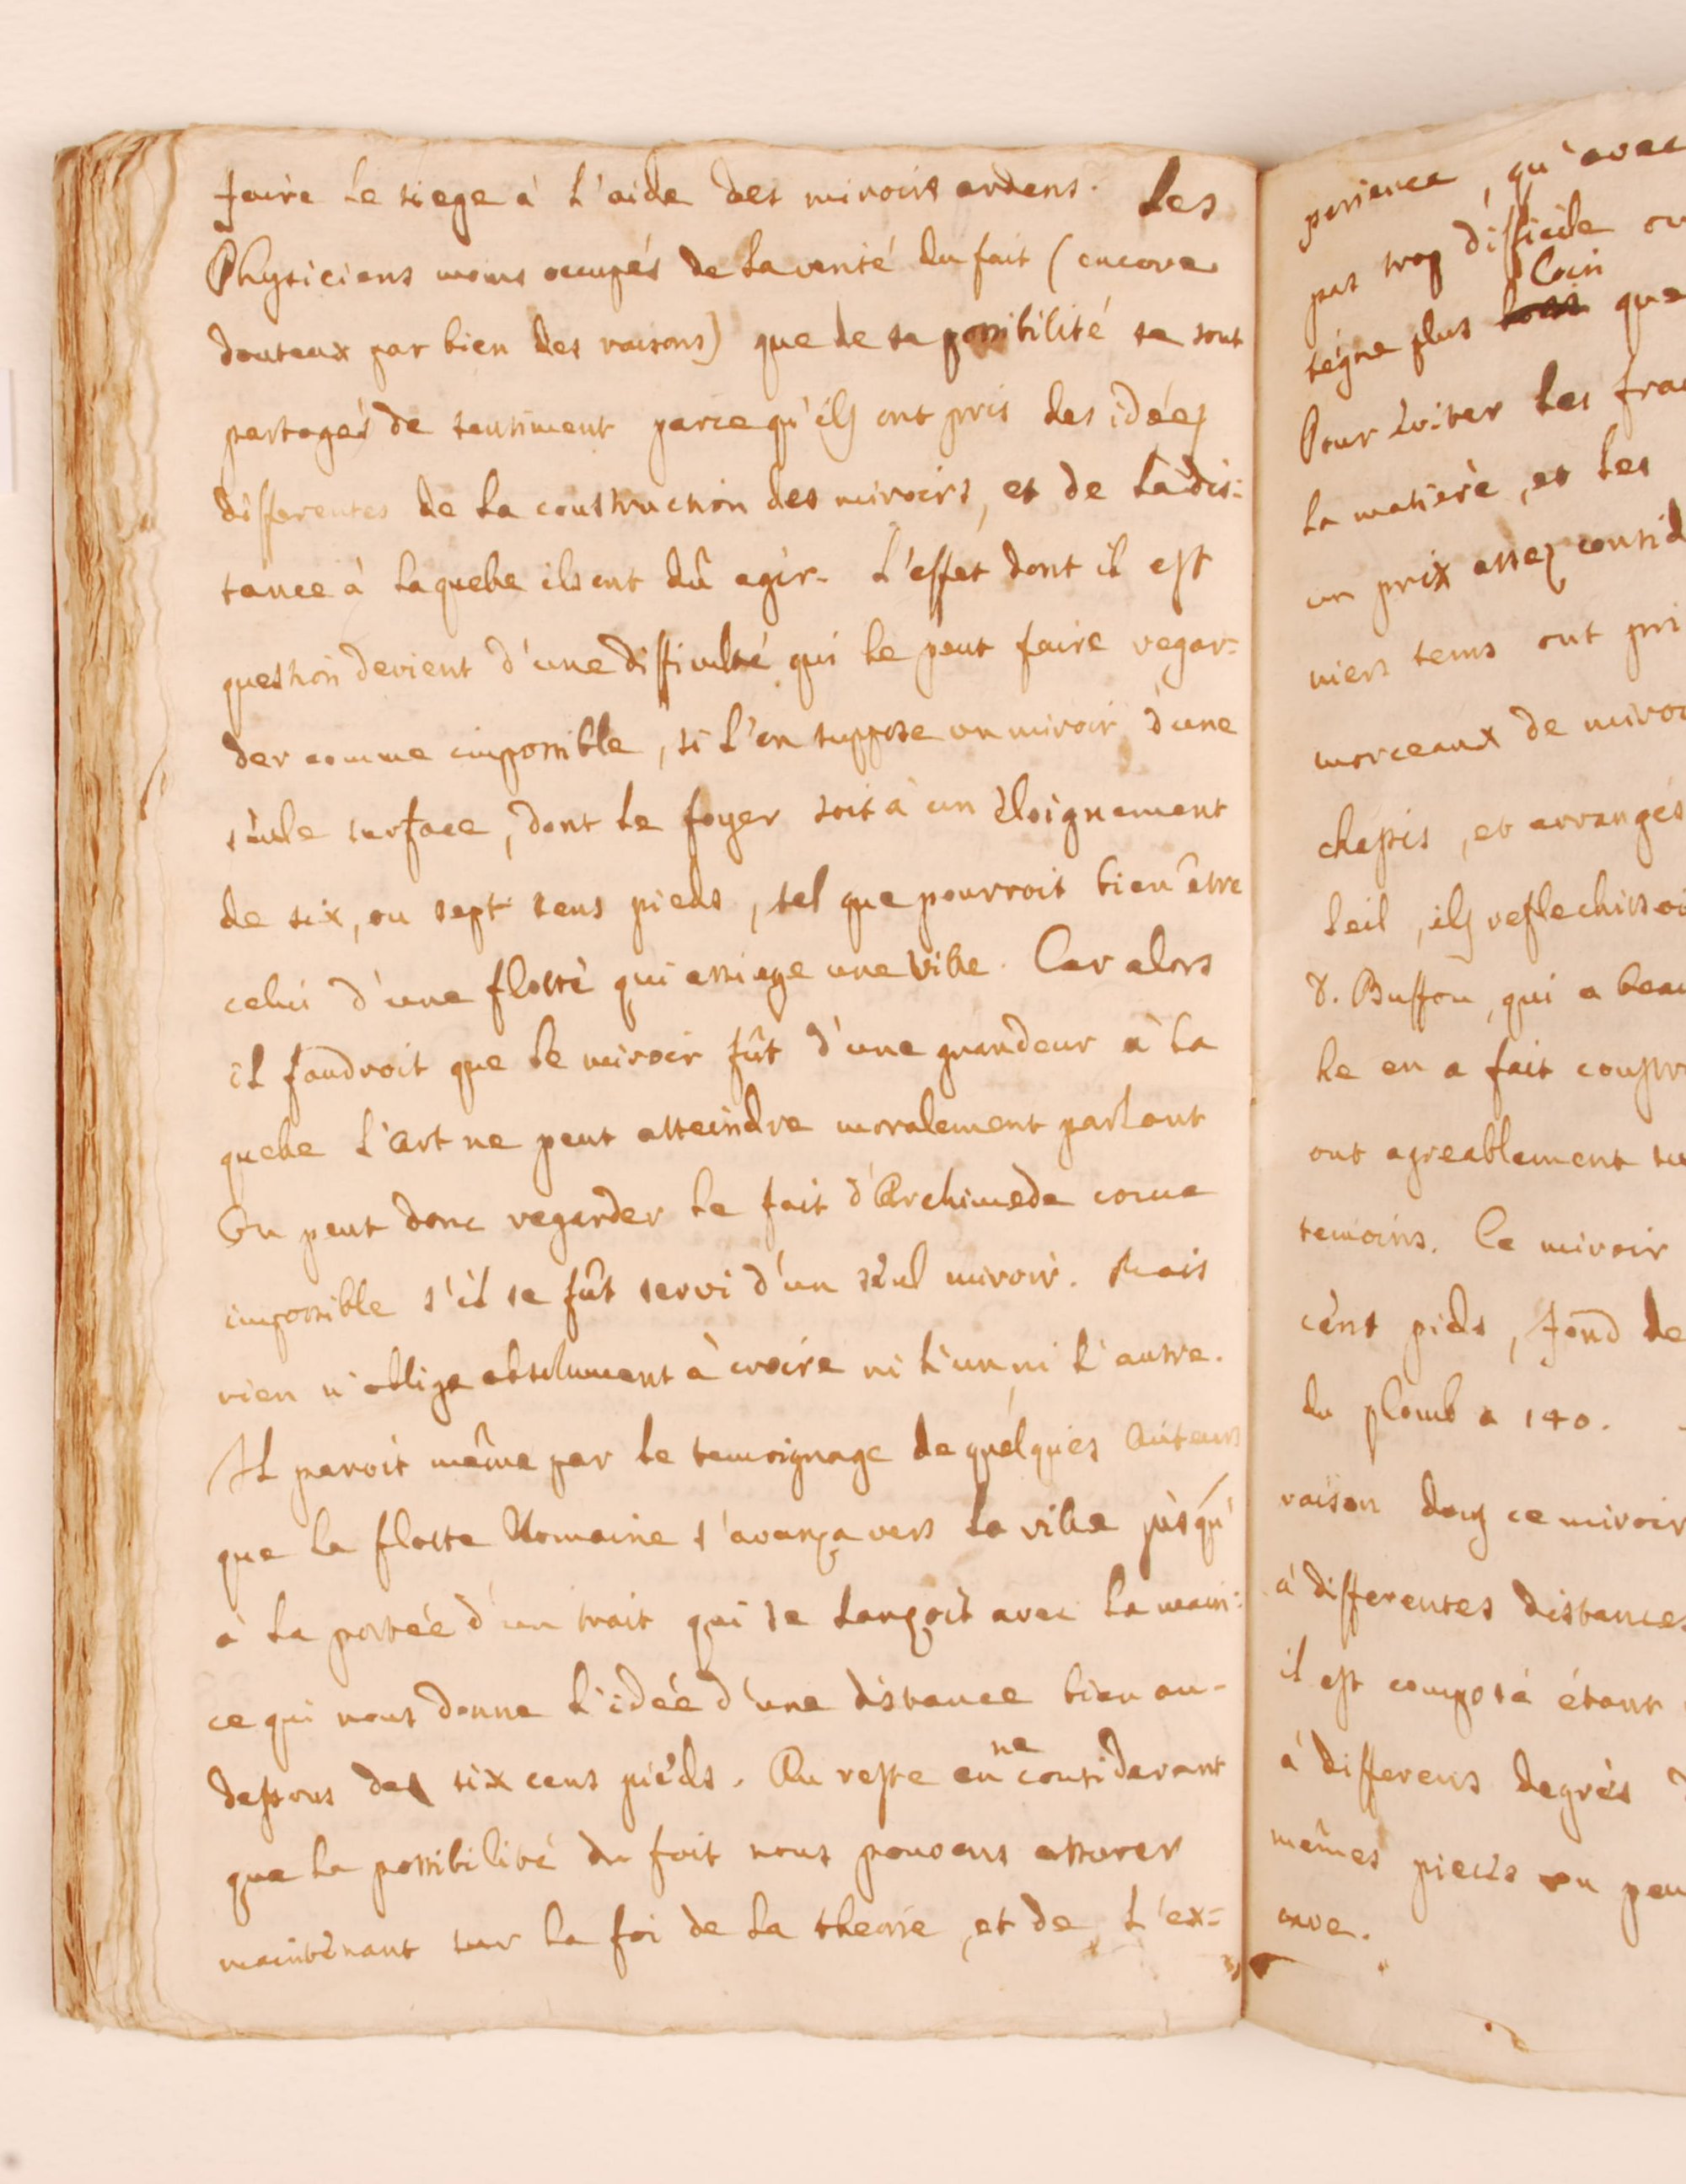 faire le siege à l'aide des miroirs ardens. Les
Physiciens moins occupés de la verité du fait (encore
douteux par bien des raisons) que de sa possibilité se sont
partagés de sentiment parce qu'ils ont pris des idées
differentes de la construction des miroirs, et de la dis:
tance à laquelle ils ont dû agir. L'effet dont il est
question devient d'une difficulté qui le peut faire regar=
der comme impossible, si l'on suppose un miroir d'une
seule surface, dont le foyer soit à un éloignement
de six, ou sept cens pieds, tel que pourroit bien être
celui d'une flotte qui assiege une Ville. Car alors
il faudroit que le miroir fût d'une grandeur à la
quelle l'art ne peut atteindre moralement parlant
On peut donc regarder le fait d'Archimede come
impossible s'il se fût servi d'un seul miroir. Mais
rien n'oblige absolument à croire ni l'un ni l'autre.
Il paroit même par le temoignage de quelques Auteurs
que la flotte Romaine s'avança vers la ville jusqu'
à la portée d'un trait qui se lançoit avec la main:
ce qui nous donne l'idée d'une distance bien au-
dessous de six cens pieds. Au reste en ne considerant
que la possibilité du fait nous pouvons assurer
maintenant sur la foi de la theorie, et de l'ex=
perience, qu'avec
pas trop difficile ou
teigne plus loin que
Pour éviter les frai
la matiere, et les
un prix assez consid
niers tems ont pri
morceaux de miroi
chassis, et arrangés
leil, ils reflechissoi
d. Buffon, qui a beau
le en a fait constr
ont agreablement su
temoins. Ce miroir
cent pieds, fond le
du plomb a 140.
raison donq ce miroir
à differentes distances
il est composé étant
à differens degrés d
mêmes pieces on peu
ure.